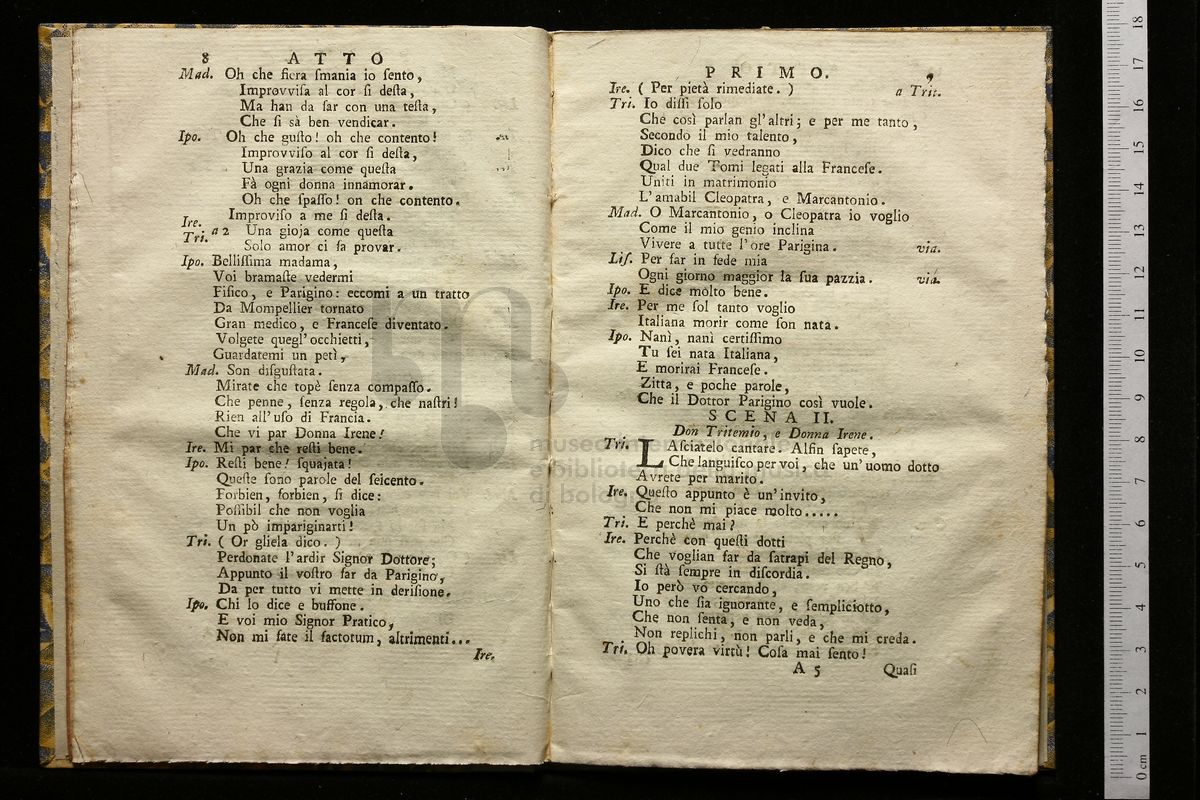 8 ATTO
Mad. Oh che fiera ſmania io ſento,
Improvviſa al cor ſi deſta,
Ma han da far con una teſta,
Che ſi sà ben vendicar.
Ipo. Oh che guſto! oh che contento!
Improvviſo al cor ſi deſta,
Una grazia come queſta
Fà ogni donna innamorar.
Oh che ſpaſſo! oh che contento.
Improviſo a me ſi deſta.
Ire.
Tri. a 2 Una gioja come queſta
Solo amor ci fa provar.
Ipo. Belliſſima madama,
Voi bramaſte vedermi
Fiſico, e Parigino: eccomi a un tratto
Da Mompellier tornato
Gran medico, e Franceſe diventato.
Volgete quegl'occhietti,
Guardatemi un peti,
Mad. Son diſguſtata.
Mirate che topè ſenza compaſſo.
Che penne, ſenza regola, che naſtri!
Rien all'uſo di Francia.
Che vi par Donna Irene!
Ire. Mi par che reſti bene.
Ipo. Reſti bene! ſquajata!
Queſte ſono parole del ſeicento.
Forbien, forbien, ſi dice:
Poſſibil che non voglia
Un pò impariginarti!
Tri. ( Or gliela dico. )
Perdonate l'ardir Signor Dottore;
Appunto il voſtro far da Parigino,
Da per tutto vi mette in deriſione.
Ipo. Chi lo dice e buffone.
E voi mio Signor Pratico,
Non mi fate il factotum, altrimenti...
Ire.
PRIMO. 9
Ire. ( Per pietà rimediate. ) a Trit.
Tri. Io diſſi ſolo
Che così parlan gl'altri; e per me tanto,
Secondo il mio talento,
Dico che ſi vedranno
Qual due Tomi legati alla Franceſe.
Uniti in matrimonio
L'amabil Cleopatra, e Marcantonio.
Mad. O Marcantonio, o Cleopatra io voglio
Come il mio genio inclina
Vivere a tutte l'ore Parigina. via.
Liſ. Per far in fede mia
Ogni giorno maggior la ſua pazzia. via.
Ipo. E dice molto bene.
Ire. Per me ſol tanto voglio
Italiana morir come ſon nata.
Ipo. Nanì, nanì certiſſimo
Tu ſei nata Italiana,
E morirai Franceſe.
Zitta, e poche parole,
Che il Dottor Parigino così vuole.
SCENA II.
Don Tritemio, e Donna Irene.
Tri. LAſciatelo cantare. Alfin ſapete,
Che languiſco per voi, che un'uomo dotto
Avrete per marito.
Ire. Queſto appunto è un'invito,
Che non mi piace molto.....
Tri. E perchè mai?
Ire. Perchè con queſti dotti
Che voglian far da ſatrapi del Regno,
Si ſtà ſempre in diſcordia.
Io però vò cercando,
Uno che ſia ignorante, e ſempliciotto,
Che non ſenta, e non veda,
Non replichi, non parli, e che mi creda.
Tri. Oh povera virtù! Coſa mai ſento!
A 5 Quaſi
museo internazionale
e biblioteca della musica
di bologna
0 cm 1 2 3 4 5 6 7 8 9 10 11 12 13 14 15 16 17 18